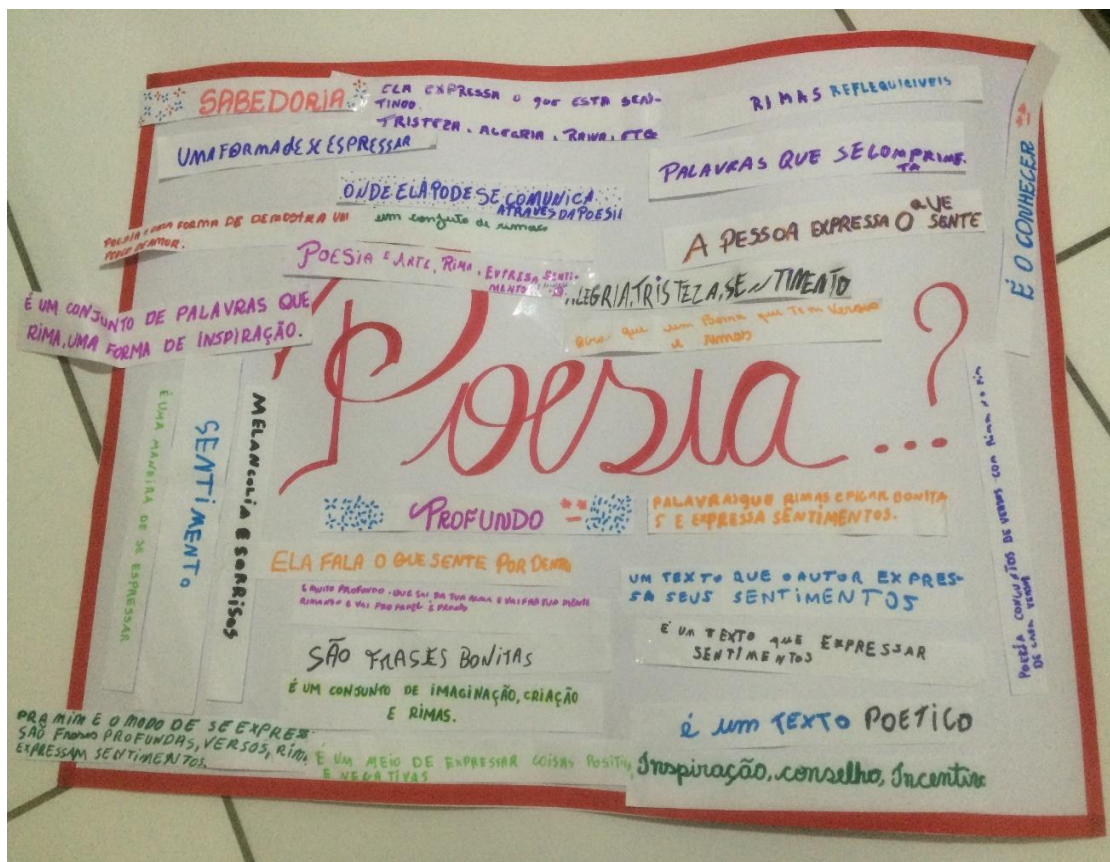 SABEDORIA
ELA EXPRESSA O QUE ESTA SEN-
TINDO.
TRISTEZA, ALEGRIA, RAIVA, ETC
RIMAS REFLEQUICIVEIS
UMA FORMA DE SE ESPRESSAR
PALAVRAS QUE SE COMPRIME.
TA
É O CONHECER
ONDE ELA PODE SE COMUNICA
ATRAVÉS DA POESIA
um conjuto de rimas
POESIA UMA FORMA DE DEMOSTRA UM
POUCO DE AMOR.
A PESSOA EXPRESSA O QUE
SENTE
POESIA E ARTE, RIMA, EXPRESA SENTI-
MENTO
ALEGRIA, TRISTEZA, SENTIMENTO
que um Poema que Tem Versos
e rimas
É UM CONJUNTO DE PALAVRAS QUE
RIMA, UMA FORMA DE INSPIRAÇÃO.
Poesia...?
É UMA MANEIRA DE SE ESPRESSAR
SENTIMENTO
MELANCOLIA E SORRISOS
PROFUNDO
PALAVRAS QUE RIMAS E FICAR BONITA
S E EXPRESSA SENTIMENTOS.
POESIA CONCUNTOS DE VERSOS COM RIMA NO FIM
DE CADA VERSO
ELA FALA O QUE SENTE POR DENTRO
É MUITO PROFUNDO, QUE SAI DA TUA ALMA E VAI PRA TUA MENTE
RIMANDO E VAI PRO PAPEL E PRONTO
UM TEXTO QUE O AUTOR EXPRES-
SA SEUS SENTIMENTOS
SÃO FRASES BONITAS
É UM TEXTO QUE EXPRESSAR
SENTIMENTOS
É UM CONJUNTO DE IMAGINAÇÃO, CRIAÇÃO
E RIMAS.
é um TEXTO POETICO
PRA MIM E O MODO DE SE EXPRES-
SÃO FRASES PROFUNDAS, VERSOS, RIM
EXPRESSAM SENTIMENTOS.
É UM MEIO DE EXPRESSAR COISAS POSITIV
E NEGATIVAS
Inspiração, conselho, Incentivo